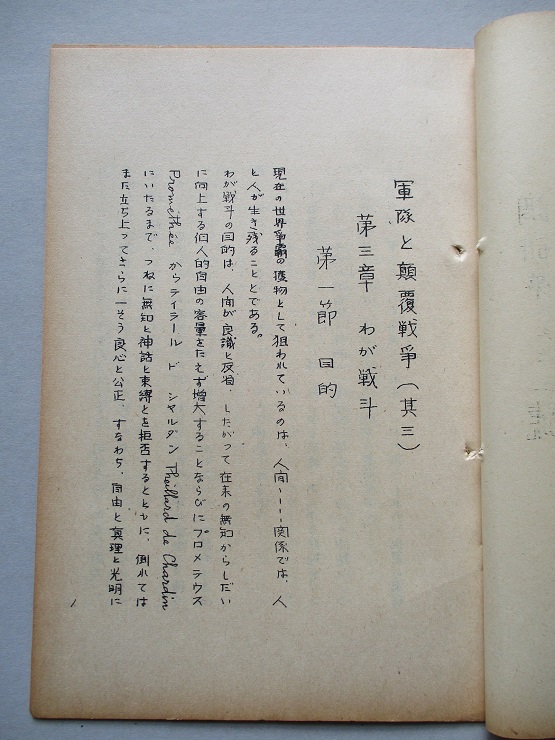 軍隊と顛覆戦爭（其三）
第三章 わが戦斗
第一節 目的
現在の世界爭覇の獲物として狙われているのは、人间ーーー関係では、人
と人が生き残ることとである。
わが戦斗の目的は、人间が良識と反省、したがって在来の無知からしだい
に向上する個人的自由の容量をたえず増大することならびにプロメテウス
Promethée からテイラール ド シャルダン Theillard de Chardin
にいたるまで、つねに無知と神話と束縛とを拒否するとともに、倒れては
また立ち上ってさらに一そう良心と公正、すなわち、自由と真理と光明に
1